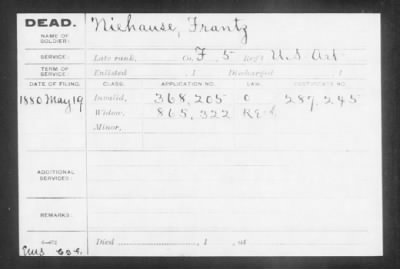 DEAD.
NAME OF SOLDIER: Niehause, Frantz
SERVICE: Late rank, Co. F, 5 Reg't U.S. Art
TERM OF SERVICE: Enlisted , 1 Discharged , 1
DATE OF FILING. CLASS. APPLICATION NO. LAW. CERTIFICATE NO.
1880 May 19 Invalid, 368,205 C 287,245
Widow, 865,322
Minor,
ADDITIONAL SERVICES:
REMARKS:
Died , 1 , at